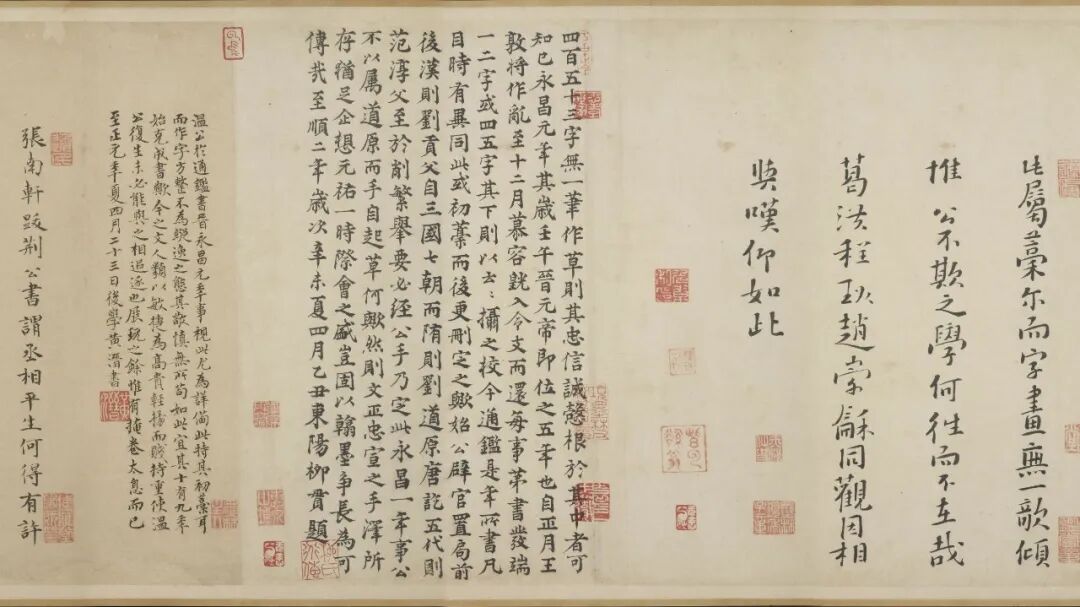 此屬藁尓而字畫無一欹傾
惟公不欺之學何往而不在哉
葛洪程珌趙崇龢同觀因相
與嘆仰如此
四百五十三字無一筆作草則其忠信誠慤根於其中者可
知已永昌元年其歲壬午晉元帝即位之五年也自正月王
敦將作亂至十二月慕容皝入令支而還每事第書發端
一二字或四五字其下則以云云攝之校今通鑑是年所書凡
目時有異同此或初藁而後更刪定之歟始公辟官置局前
後漢則劉貢父自三國七朝而隋則劉道原唐訖五代則
范淳父至於削繁舉要必經公手乃定此永昌一年事公
不以屬道原而手自起草何歟然則文正忠宣之手澤所
存猶足企想元祐一時際會之盛豈固以翰墨爭長為可
傳哉至順二年歲次辛未夏四月乙丑東陽柳貫題
溫公於通鑑書晉永昌元年事視此尤為詳備此特其初藁耳
而作字方整不為縱逸之態其敬慎無所苟如此宜其十有九年
始克成書歟今之文人類以敏捷為高貴輕揚而賤持重使溫
公復生未必能與之相追逐也展玩之餘惟有掩卷太息而已
至正元年夏四月二十三日後學黃溍書
張南軒跋荊公書謂丞相平生何得有許